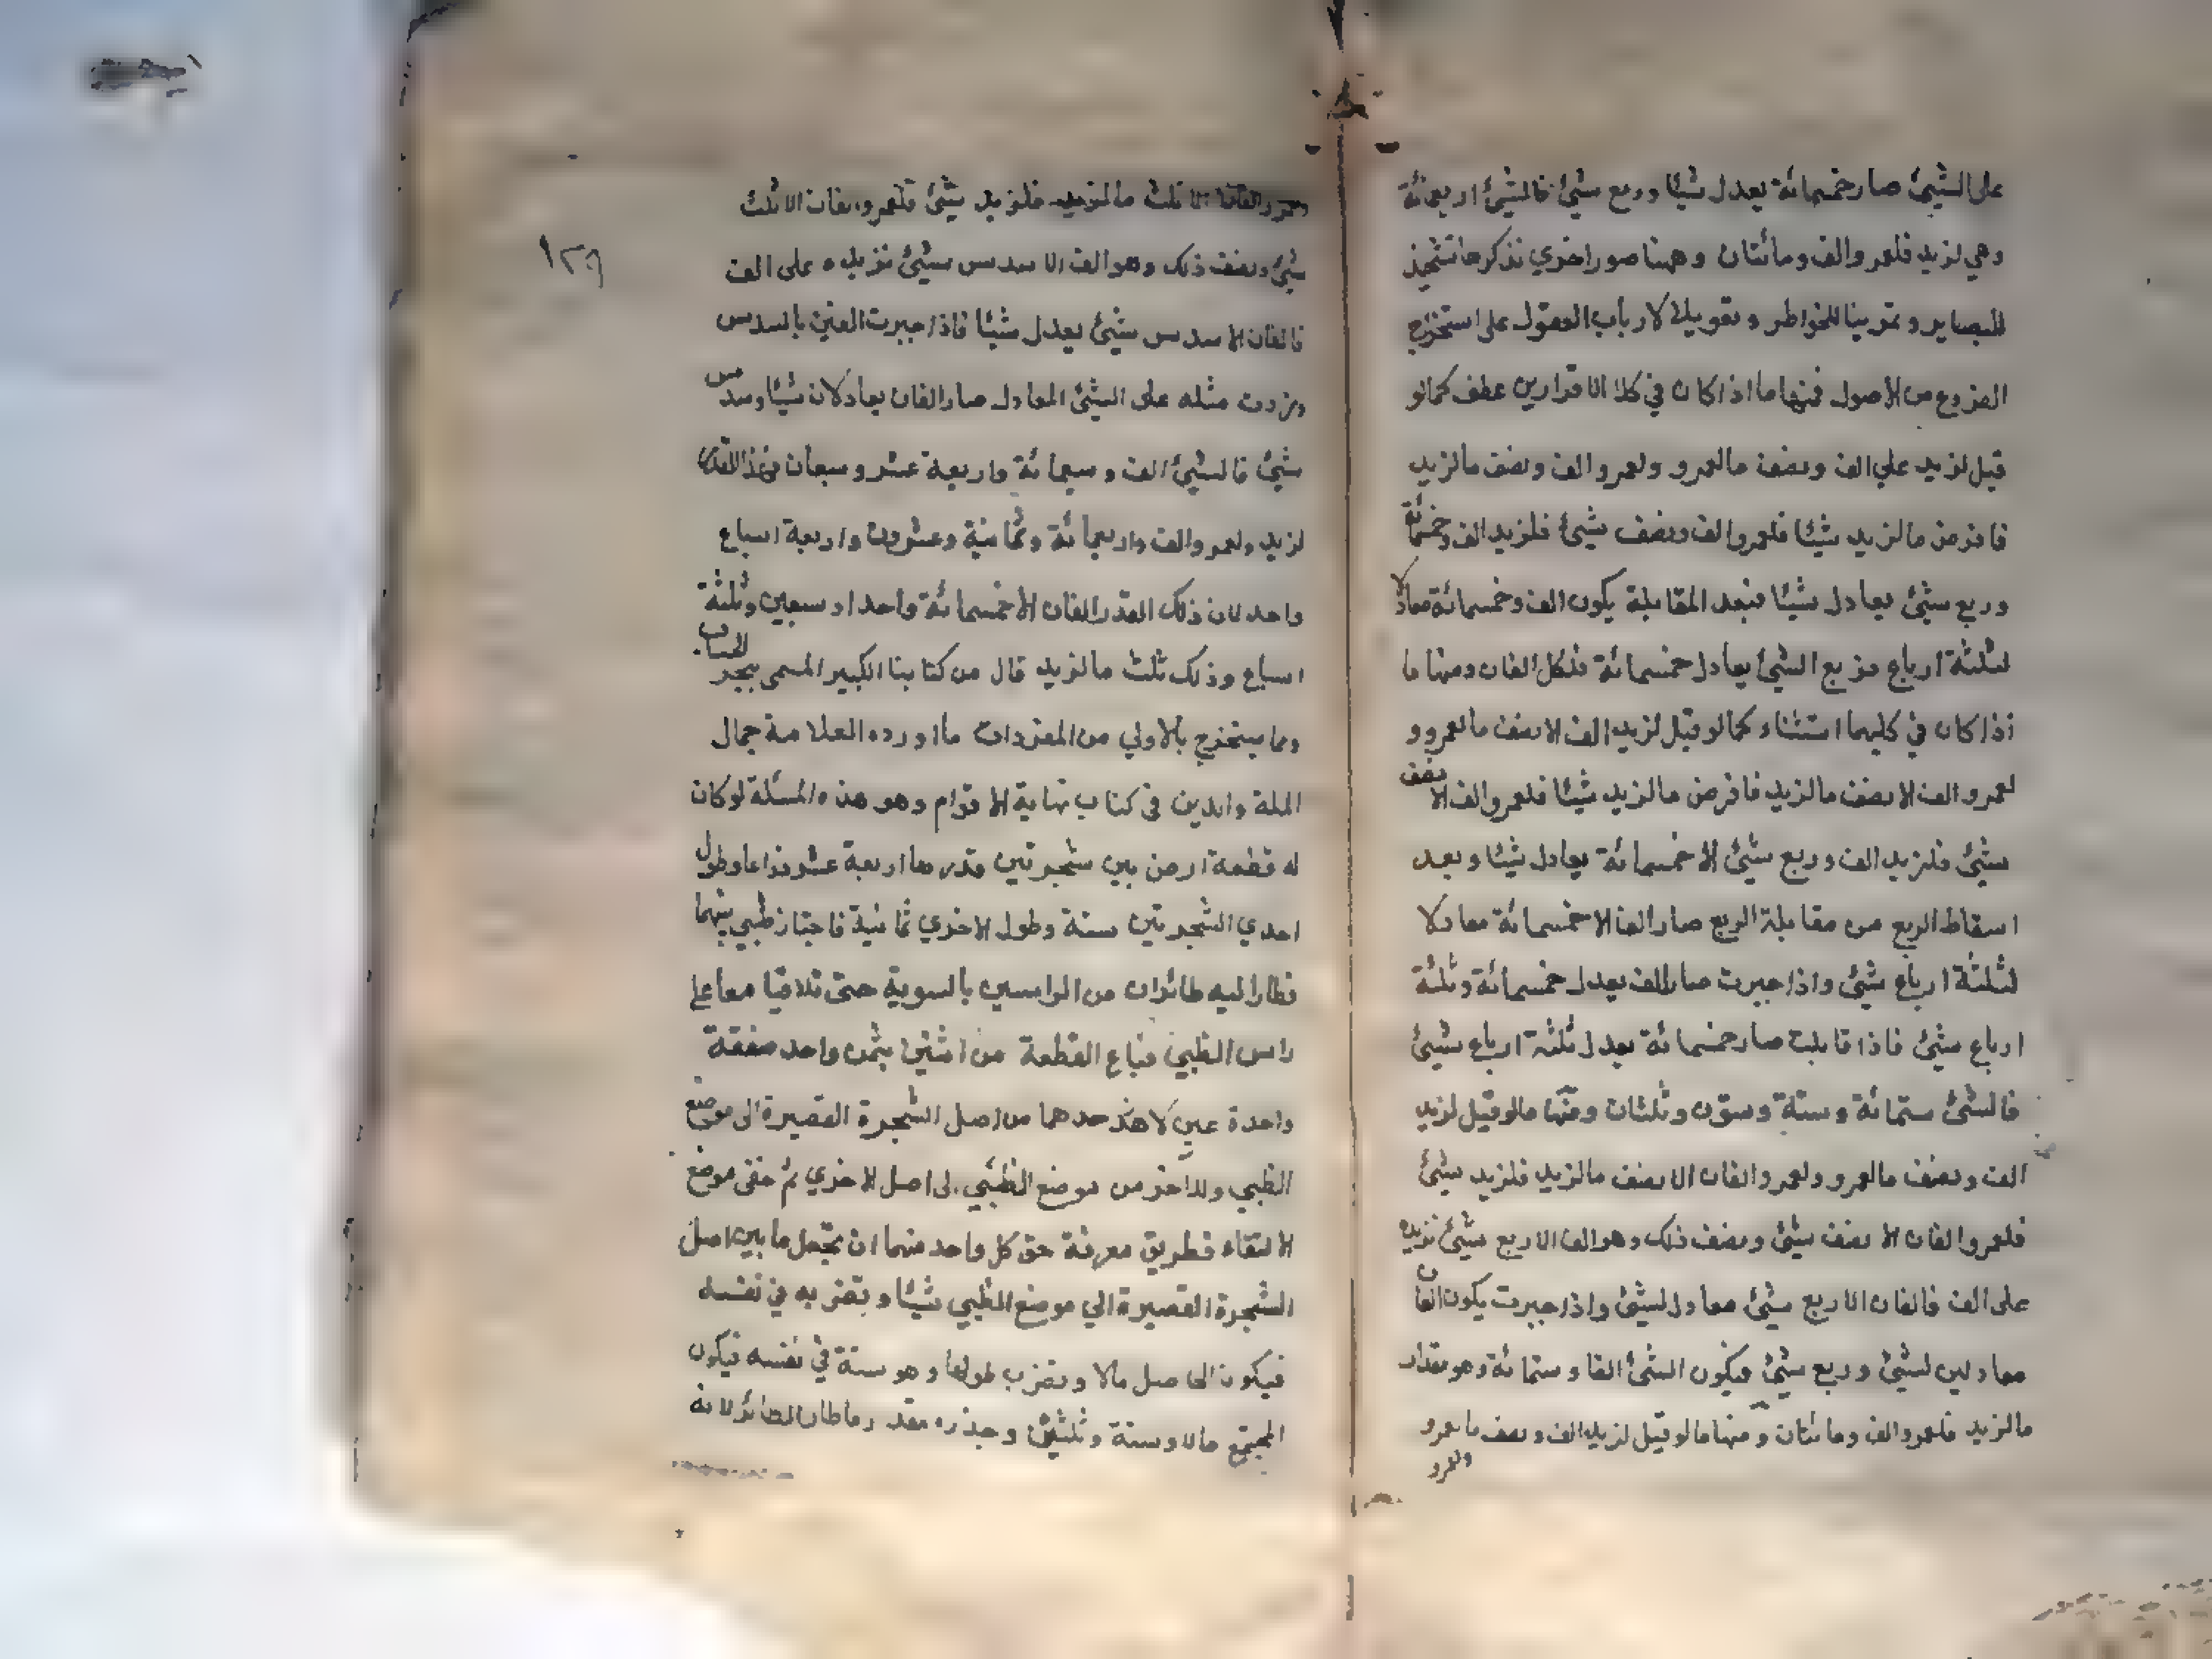 على الشيئ صار خمسمائة يعدل شيئا وربع شيئ فالشيئ اربعمائة
وهي لزيد فلعمرو الف ومائتان وههنا صور اخري نذكرها تشحيذ
للبصاير وتمرينا للخواطر وتقويلا لارباب العقول على استخراج
الفروع من الاصول فمنها ما اذا كان في كلا الاقرارين عطف كما لو
قيل لزيد علي الف ونصف ما لعمرو ولعمرو الف ونصف ما لزيد
فافرض ما لزيد شيئا فلعمرو الف ونصف شيئ فلزيد الف وخمسمائة
وربع شيئ يعادل شيئا فبعد المقابلة يكون الف وخمسمائة معادلا
لثلثة ارباع فربع الشيئ يعادل خمسمائة فلكل الفان ومنها ما
اذا كان في كليهما استثناء كما لو قيل لزيد الف الا نصف ما لعمرو و
لعمرو الف الا نصف ما لزيد فافرض ما لزيد شيئا فلعمرو الف الا نصف
شيئ فلزيد الف وربع شيئ الا خمسمائة يعادل شيئا وبعد
اسقاط الربع من مقابلة الربع صار الفا الا خمسمائة معادلا
لثلثة ارباع شيئ واذا جبرت صار الف يعدل خمسمائة وثلثة
ارباع شيئ فاذا قابلت صار خمسمائة يعدل ثلثة ارباع شيئ
فالشيئ ستمائة وستة وستون وثلثان ومنها ما لو قيل لزيد
الف ونصف ما لعمرو ولعمرو الفان الا نصف ما لزيد فلزيد شيئ
فلعمرو الفان الا نصف شيئ ونصف ذلك وهو الف الا ربع شيئ نزيده
على الف فالفان الا ربع شيئ معادل لشيئ واذا جبرت يكون الفان
معادلين لشيئ وربع شيئ فيكون الشيئ الفا وستمائة وهو مقدار
ما لزيد فلعمرو الف ومائتان ومنها ما لو قيل لزيد الف ونصف ما لعمرو
ولعمرو
ولعمرو الفان الا ثلث ما لزيد فلزيد شيئ فلعمرو الفان الا ثلث
شيئ ونصف ذلك وهو الف الا سدس شيئ نزيده على الف
فالفان الا سدس شيئ يعدل شيئا فاذا جبرت الفين بالسدس
وزدت مثله على الشيئ المعادل صار الفان يعادلان شيئا وسدس
شيئ فالشيئ الف وسبعمائة واربعة عشر وسبعان فهذا القدر
لزيد ولعمرو الف واربعمائة وثمانية وعشرون واربعة اسباع
واحد لان ذلك القدر الفان الا خمسمائة واحدا وسبعين وثلثة
اسباع وذلك ثلث ما لزيد قال من كتابنا الكبير المسمى ببحر الحساب
ومما يستخرج بالاولي من المفردات ما اورده العلامة جمال
الملة والدين في كتاب نهاية الاقوام وهو هذه المسئلة لو كان
له قطعة ارض بين شجرتين قدرها اربعة عشر ذراعا وطول
احدي الشجرتين ستة وطول الاخري ثمانية فاجتاز ظبي بينهما
فطارا ليه طائران من الراسين بالسوية حتى تلاقيا معا على
راس الظبي فباع القطعة من اثنين بثمن واحد صفقة
واحدة عين لاحدهما من اصل الشجرة القصيرة الى موضع
الظبي وللاخر من موضع الظبي الى اصل الاخري ثم خفى موضع
الالتقاء فطريق معرفة حق كل واحد منهما ان تجعل ما بين اصل
الشجرة القصيرة الي موضع الظبي شيئا وتضربه في نفسه
فيكون الحاصل مالا وتضرب طولها وهو ستة في نفسه فيكون
المجتمع مالا وستة وثلثين وجذره مقدار ما طار الطائر لانه
١٢٩